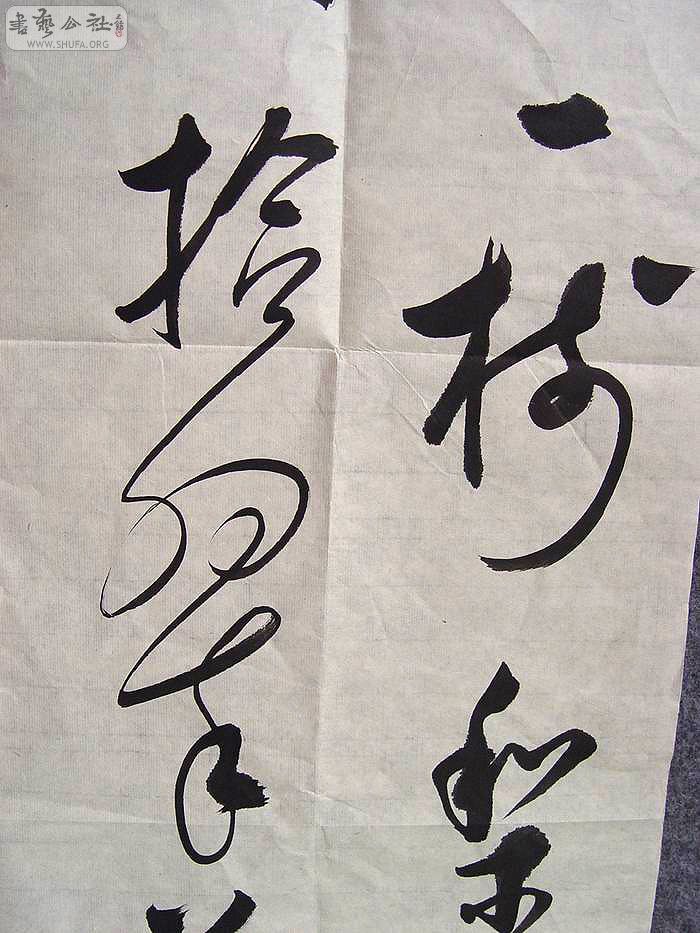 書藝公社
WWW.SHUFA.ORG
一树梨
拾翠